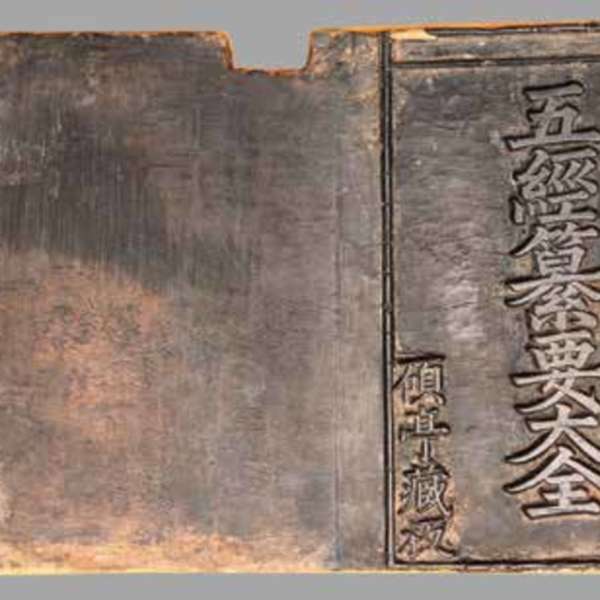 五經纂要大全
碩亭藏板